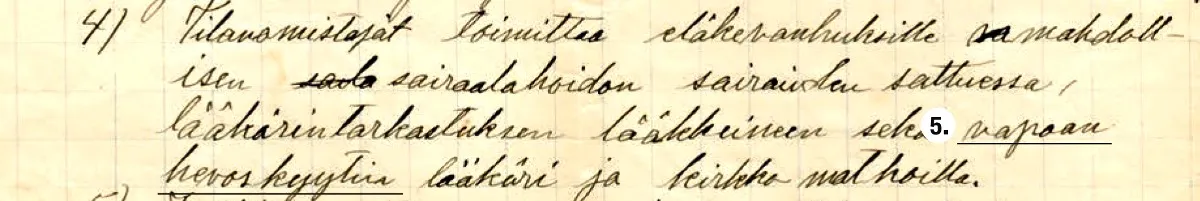 4) Tilanomistajat toimittaa eläkevanhuksille mahdoll-
isen sairaalahoidon sairauden sattuessa,
lääkärintarkastuksen lääkkeineen sekä 5. vapaan
hevoskyytin lääkäri ja kirkko matkoilla.